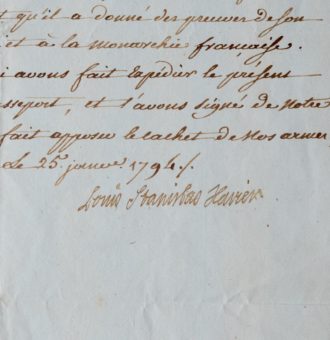 t qu'il a donné des preuves de son
et à la monarchie française.
i avons fait expédier le présent
sseport, et l'avons signé de Notre
fait apposer le cachet de Nos armes
Le 25 janv. 1794
Louis Stanislas Xavier